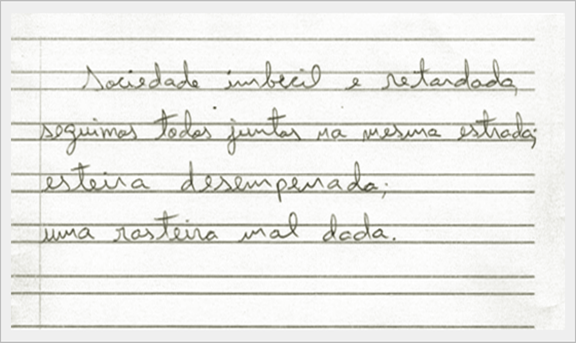 Sociedade imbecil e retardada,
seguimos todos juntos na mesma estrada;
esteira desempenada;
uma rasteira mal dada.